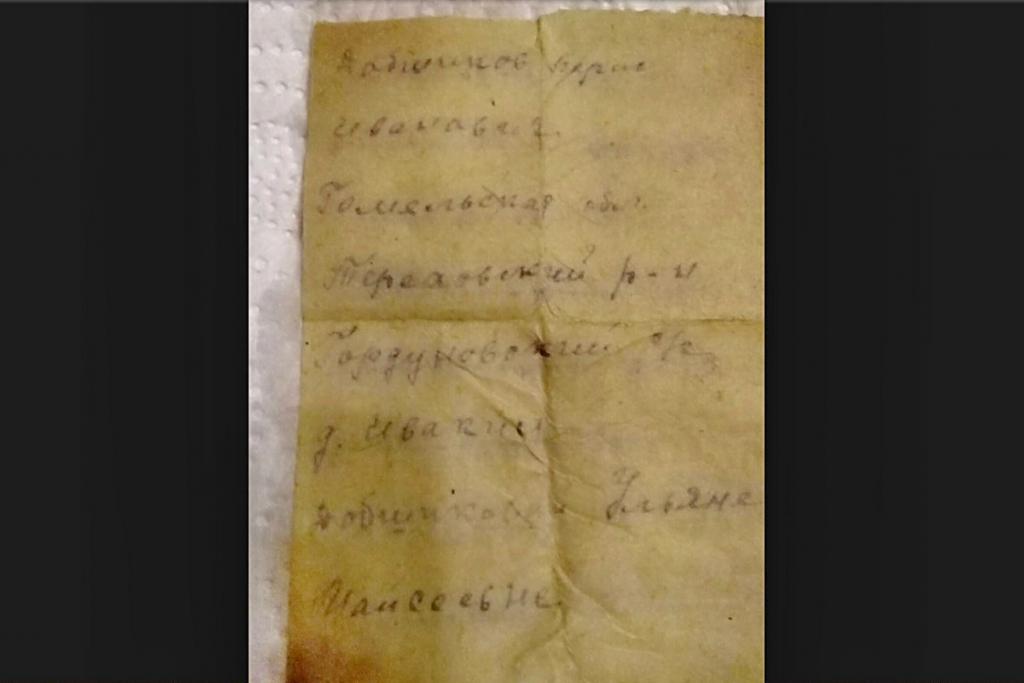 Добшиков
Иванович
Гомельская обл.
Тереховский р-н
Гордуновский с/с
д. Ивакин
Добшиковой Ульяне
Маисеевне